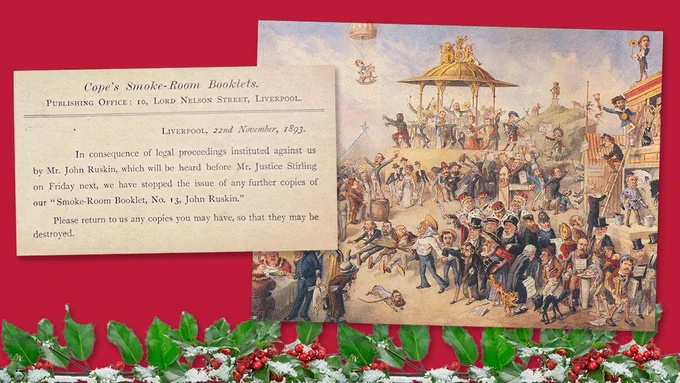 Cope's Smoke-Room Booklets.
Publishing Office: 10, Lord Nelson Street, Liverpool.
Liverpool, 22nd November, 1893.
In consequence of legal proceedings instituted against us
by Mr. John Ruskin, which will be heard before Mr. Justice Stirling
on Friday next, we have stopped the issue of any further copies of
our "Smoke-Room Booklet, No. 13, John Ruskin."
Please return to us any copies you may have, so that they may be
destroyed.